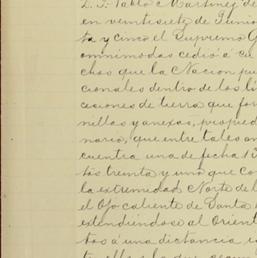 D. J. Pablo e Martinez de
en veintesiete de Junio
ta y cinco el Supremo G
omnimodas cedió á cu
chos que la Nacion pu
cionales dentro de los li
cesiones de tierra que for
nillas y anexas, propied
nario, que entre tales an
cuentra una de fecha 1º
tos treinta y uno que co
la extremidad Norte de l
el Ojo caliente de Santa
extendiendose al Orient
tos á una distancia